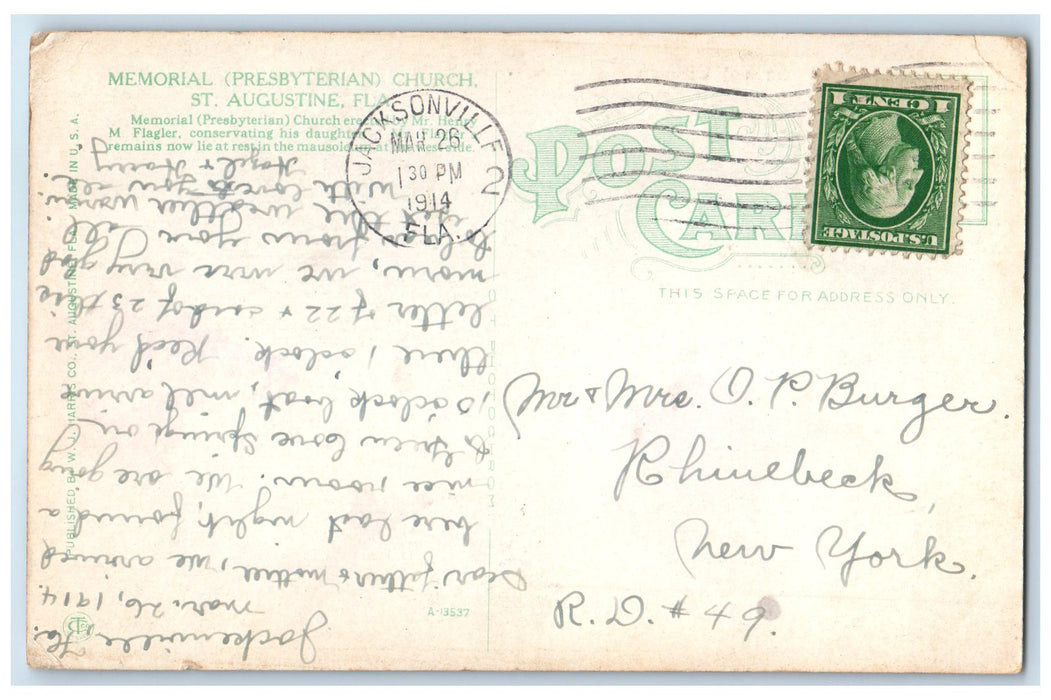 MEMORIAL (PRESBYTERIAN) CHURCH.
ST. AUGUSTINE, FLA
Memorial (Presbyterian) Church ere Mr. Henry
M Flagler, conservating his daught
remains now lie at rest in the mausoleum at
PUBLISHED BY W. J. HARRIS CO., ST. AUGUSTINE, FLA. MADE IN U. S. A.
JACKSONVILLE 2
MAR 26
1 30 PM
1914
FLA.
POST
CARD
1 CENT 1
U.S. POSTAGE
THIS SPACE FOR ADDRESS ONLY.
Mr & Mrs. O. P. Burger.
Rhinebeck,
New York.
R.D. # 49.
A-13537
Jacksonville, Fla.
Mar. 26, 1914.
Dear father & mother, we arrived
here last night, found a
nice room. We are going
to Green Cove Springs on
10 oclock boat, will arrive
there 1 oclock. Recd your
letter of 22 & card of 23 this
morn, we were very glad
to hear from you all.
the weather warm
with love to you all
Hazel & Harry